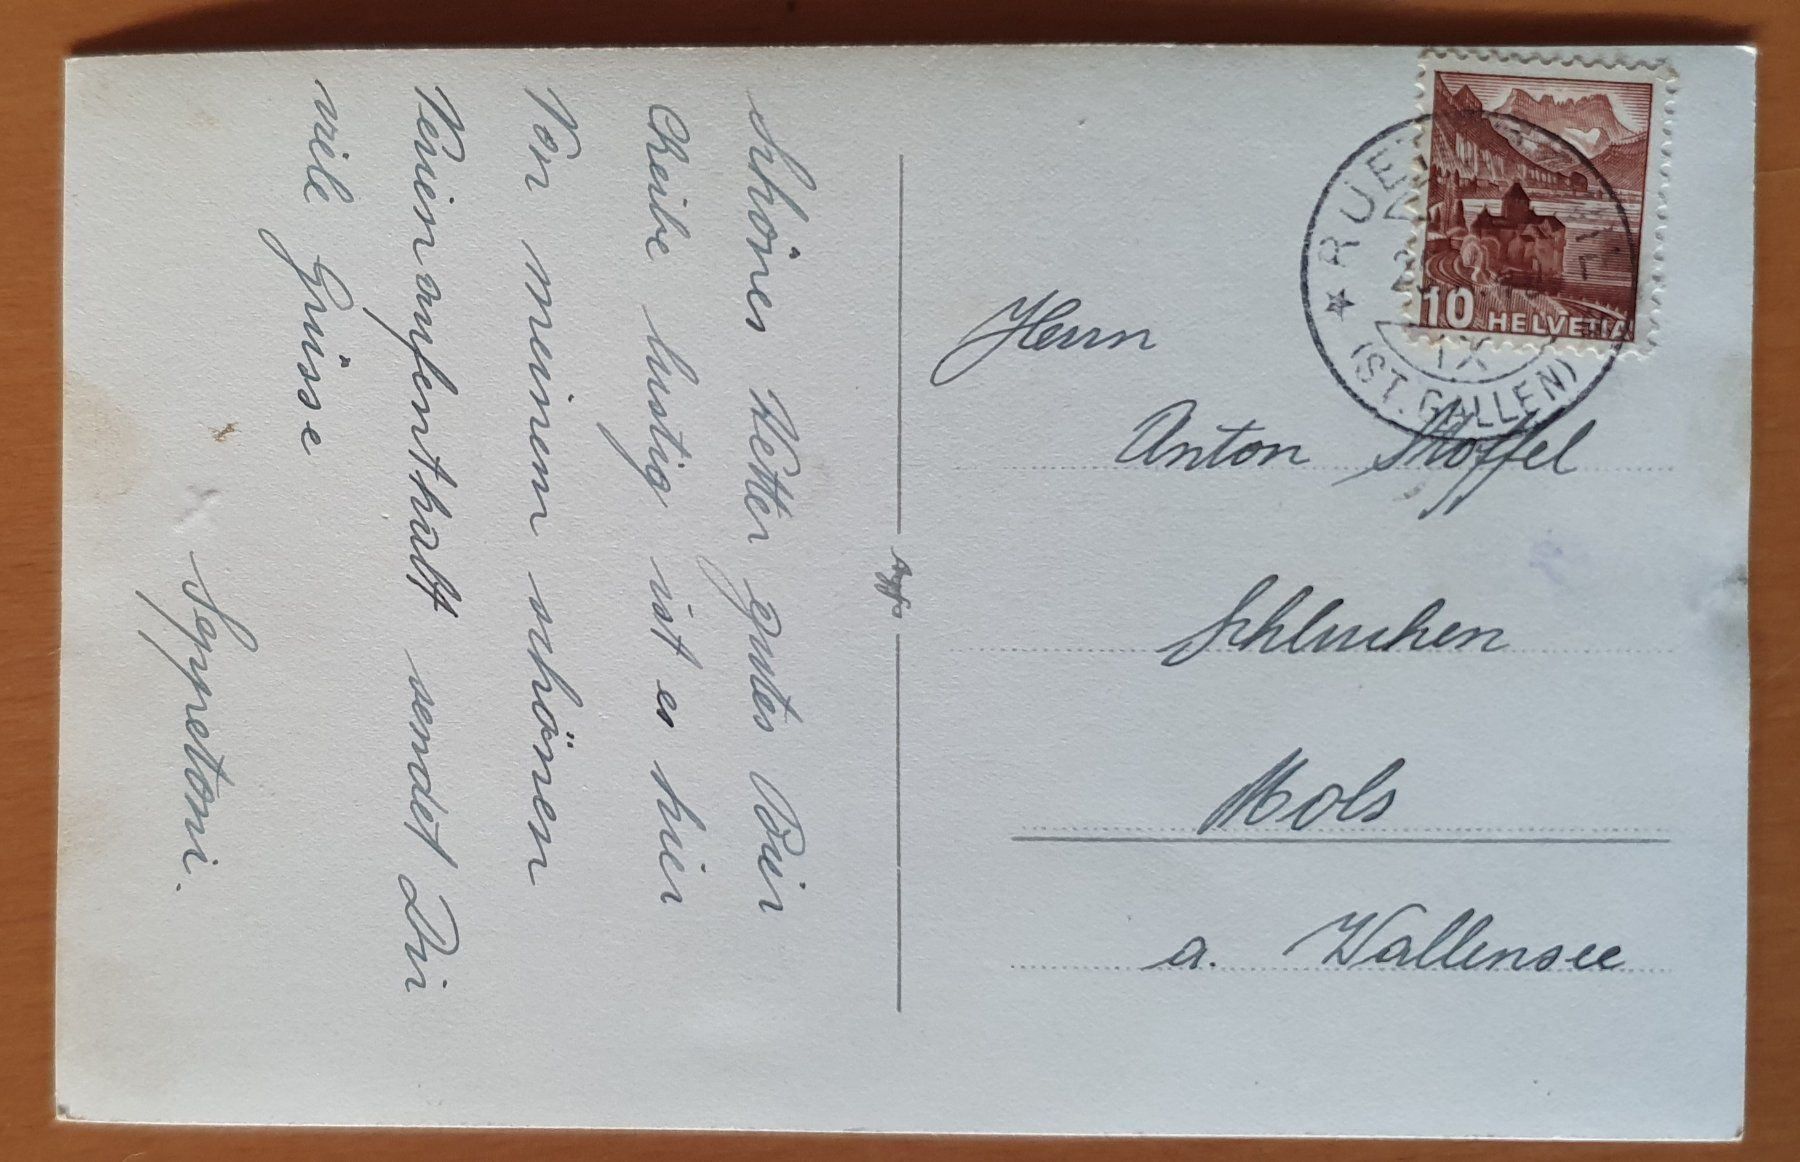 Schönes Wetter gutes Bier
Cheibe lustig ist es hier
Von meinem schönen
Ferienaufenthalt sendet Dir
viele Grüsse
Seppetoni.
Herrn
Anton Stoffel
Schluchen
Mols
a. Wallensee
10 HELVETIA
IX
(ST. GALLEN)